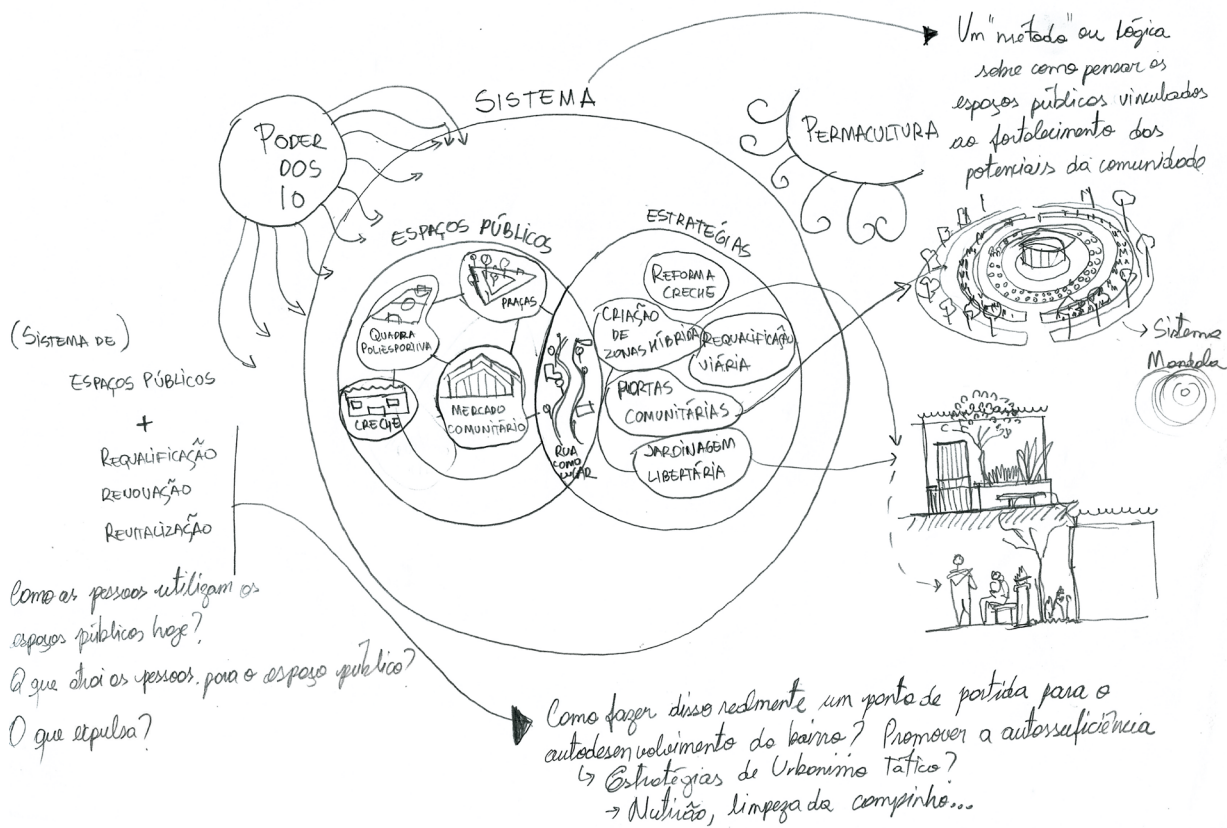 Um "método" ou lógica
sobre como pensar os
espaços públicos vinculados
ao fortalecimento dos
potenciais da comunidade
SISTEMA
PODER
DOS
10
PERMACULTURA
ESPAÇOS PÚBLICOS
ESTRATÉGIAS
PRAÇAS
QUADRA
POLIESPORTIVA
CRECHE
MERCADO
COMUNITÁRIO
RUA
COMO
LUGAR
REFORMA
CRECHE
CRIAÇÃO
DE
ZONAS HÍBRIDA
REQUALIFICAÇÃO
VIÁRIA
HORTAS
COMUNITÁRIAS
JARDINAGEM
LIBERTÁRIA
Sistema
Mandala
(SISTEMA DE)
ESPAÇOS PÚBLICOS
+
REQUALIFICAÇÃO
RENOVAÇÃO
REVITALIZAÇÃO
Como as pessoas utilizam os
espaços públicos hoje?
O que atrai as pessoas para o espaço público?
O que expulsa?
Como fazer disso realmente um ponto de partida para o
autodesenvolvimento do bairro? Promover a autossuficiência
↳ Estratégias de Urbanismo Tático?
→ Nutrição, limpeza do campinho...